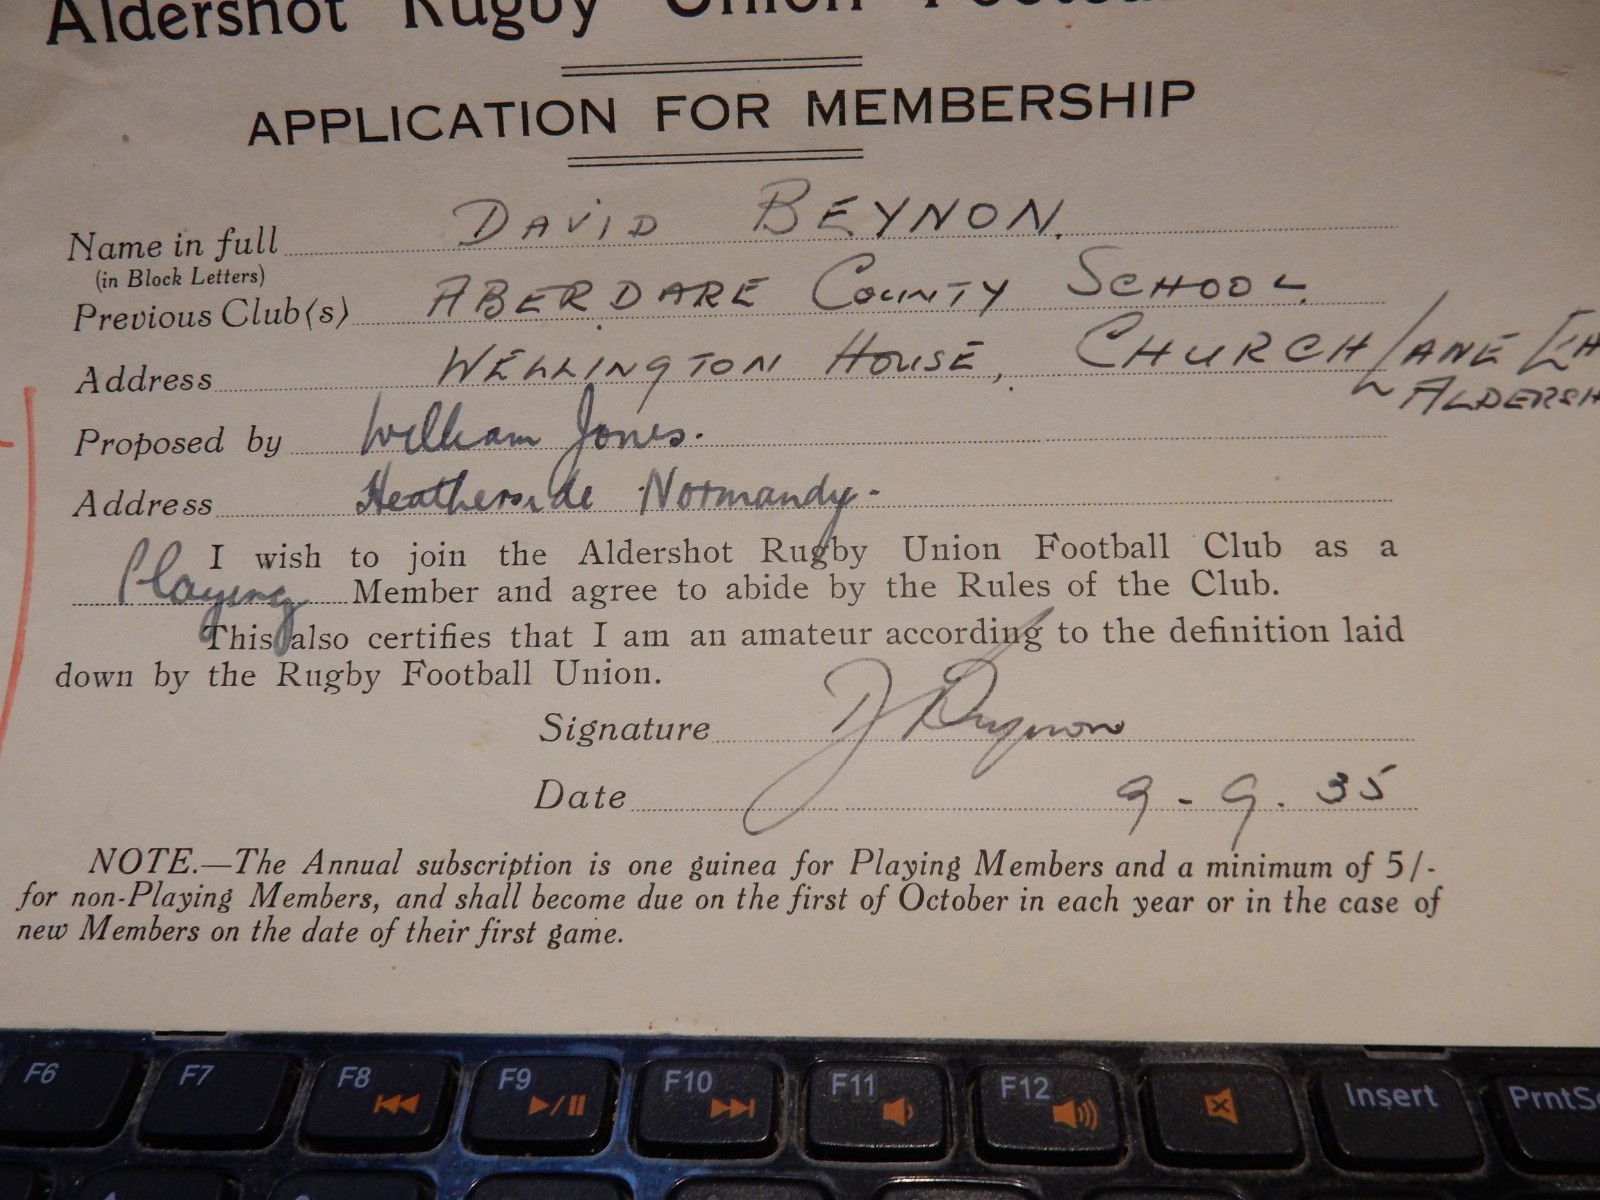 Aldershot Rugby Union
APPLICATION FOR MEMBERSHIP
Name in full DAVID BEYNON.
(in Block Letters)
Previous Club(s) ABERDARE COUNTY SCHOOL.
Address WELLINGTON HOUSE, CHURCH LANE
Proposed by William Jones.
Address Heatherside Normandy.
I wish to join the Aldershot Rugby Union Football Club as a
Playing Member and agree to abide by the Rules of the Club.
This also certifies that I am an amateur according to the definition laid
down by the Rugby Football Union.
Signature D Beynon
Date 9 - 9 . 35
NOTE.—The Annual subscription is one guinea for Playing Members and a minimum of 5/-
for non-Playing Members, and shall become due on the first of October in each year or in the case of
new Members on the date of their first game.
F6 F7 F8 F9 F10 F11 F12 Insert